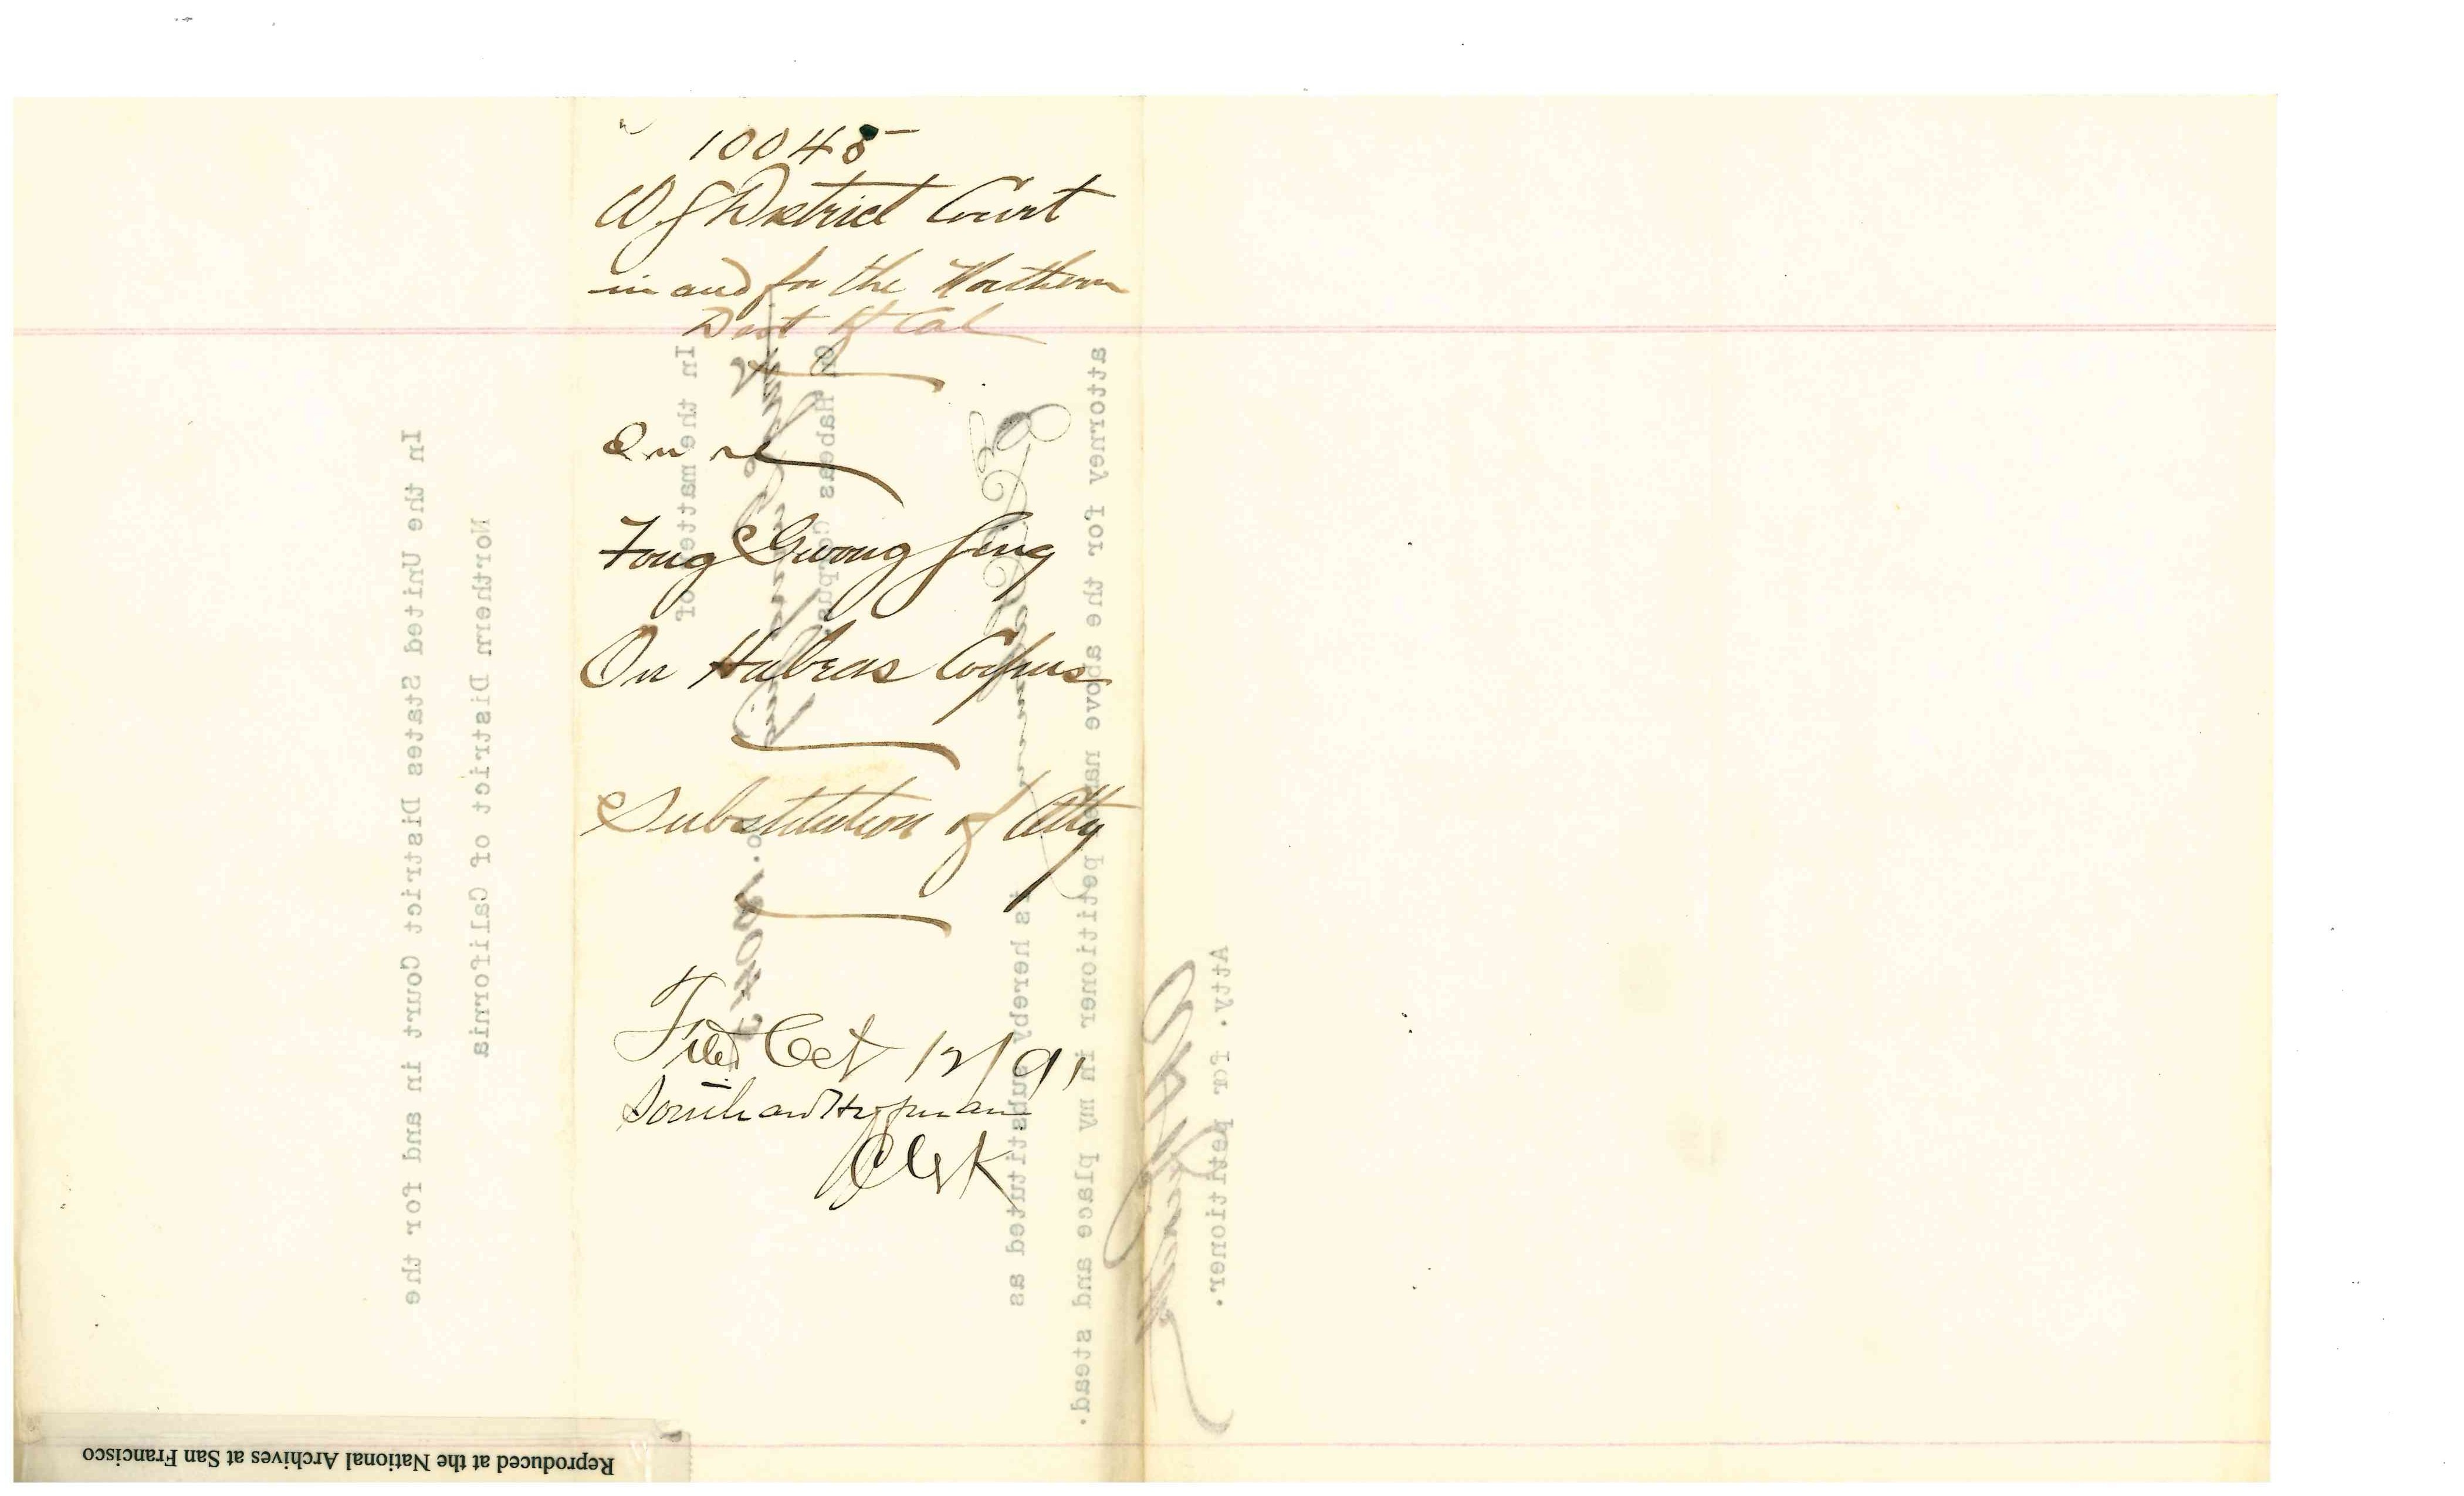 10045
US District Court
in and for the Northern
Dist of Cal
In re
Fong Gwong Sing
On Habeas Corpus
Substitution of Atty
Filed Oct 12/91
Southard Hoffman
Clerk
In the United States District Court in and for the
Northern District of California
In the matter of
On Habeas Corpus.
No. 10045
is hereby substituted as
attorney for the above named petitioner in my place and stead.
Atty. for petitioner.
Reproduced at the National Archives at San Francisco